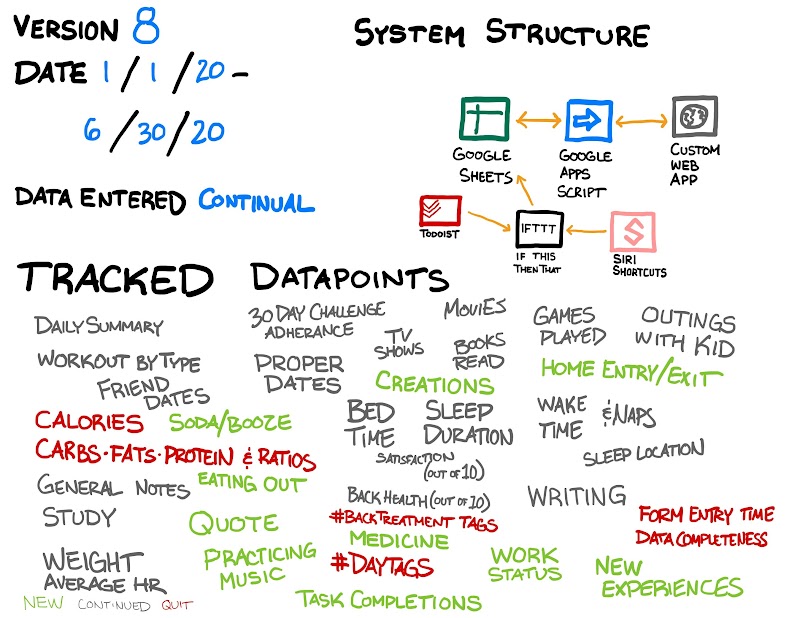 VERSION 8
SYSTEM STRUCTURE
DATE 1/1/20 -
6/30/20
DATA ENTERED CONTINUAL
GOOGLE
SHEETS
GOOGLE
APPS
SCRIPT
CUSTOM
WEB
APP
TODOIST
IFTTT
IF THIS
THEN THAT
SIRI
SHORTCUTS
TRACKED DATAPOINTS
DAILY SUMMARY
30 DAY CHALLENGE
ADHERANCE
MOVIES
GAMES
PLAYED
OUTINGS
WITH KID
TV
SHOWS
BOOKS
READ
WORKOUT BY TYPE
PROPER
DATES
CREATIONS
HOME ENTRY/EXIT
FRIEND
DATES
CALORIES
SODA/BOOZE
BED
TIME
SLEEP
DURATION
WAKE
TIME
& NAPS
CARBS·FATS·PROTEIN & RATIOS
SATISFACTION
(OUT OF 10)
SLEEP LOCATION
GENERAL NOTES
EATING OUT
BACK HEALTH (OUT OF 10)
WRITING
STUDY
QUOTE
#BACKTREATMENT TAGS
MEDICINE
FORM ENTRY TIME
DATA COMPLETENESS
WEIGHT
AVERAGE HR
PRACTICING
MUSIC
#DAYTAGS
WORK
STATUS
NEW
EXPERIENCES
NEW CONTINUED QUIT
TASK COMPLETIONS